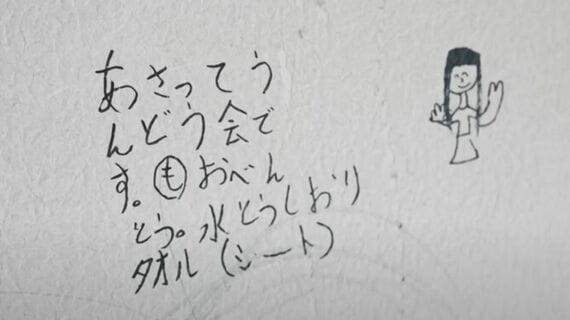 あさってう
んどう会で
す。もおべん
とう。水とうしおり
タオル(シート)